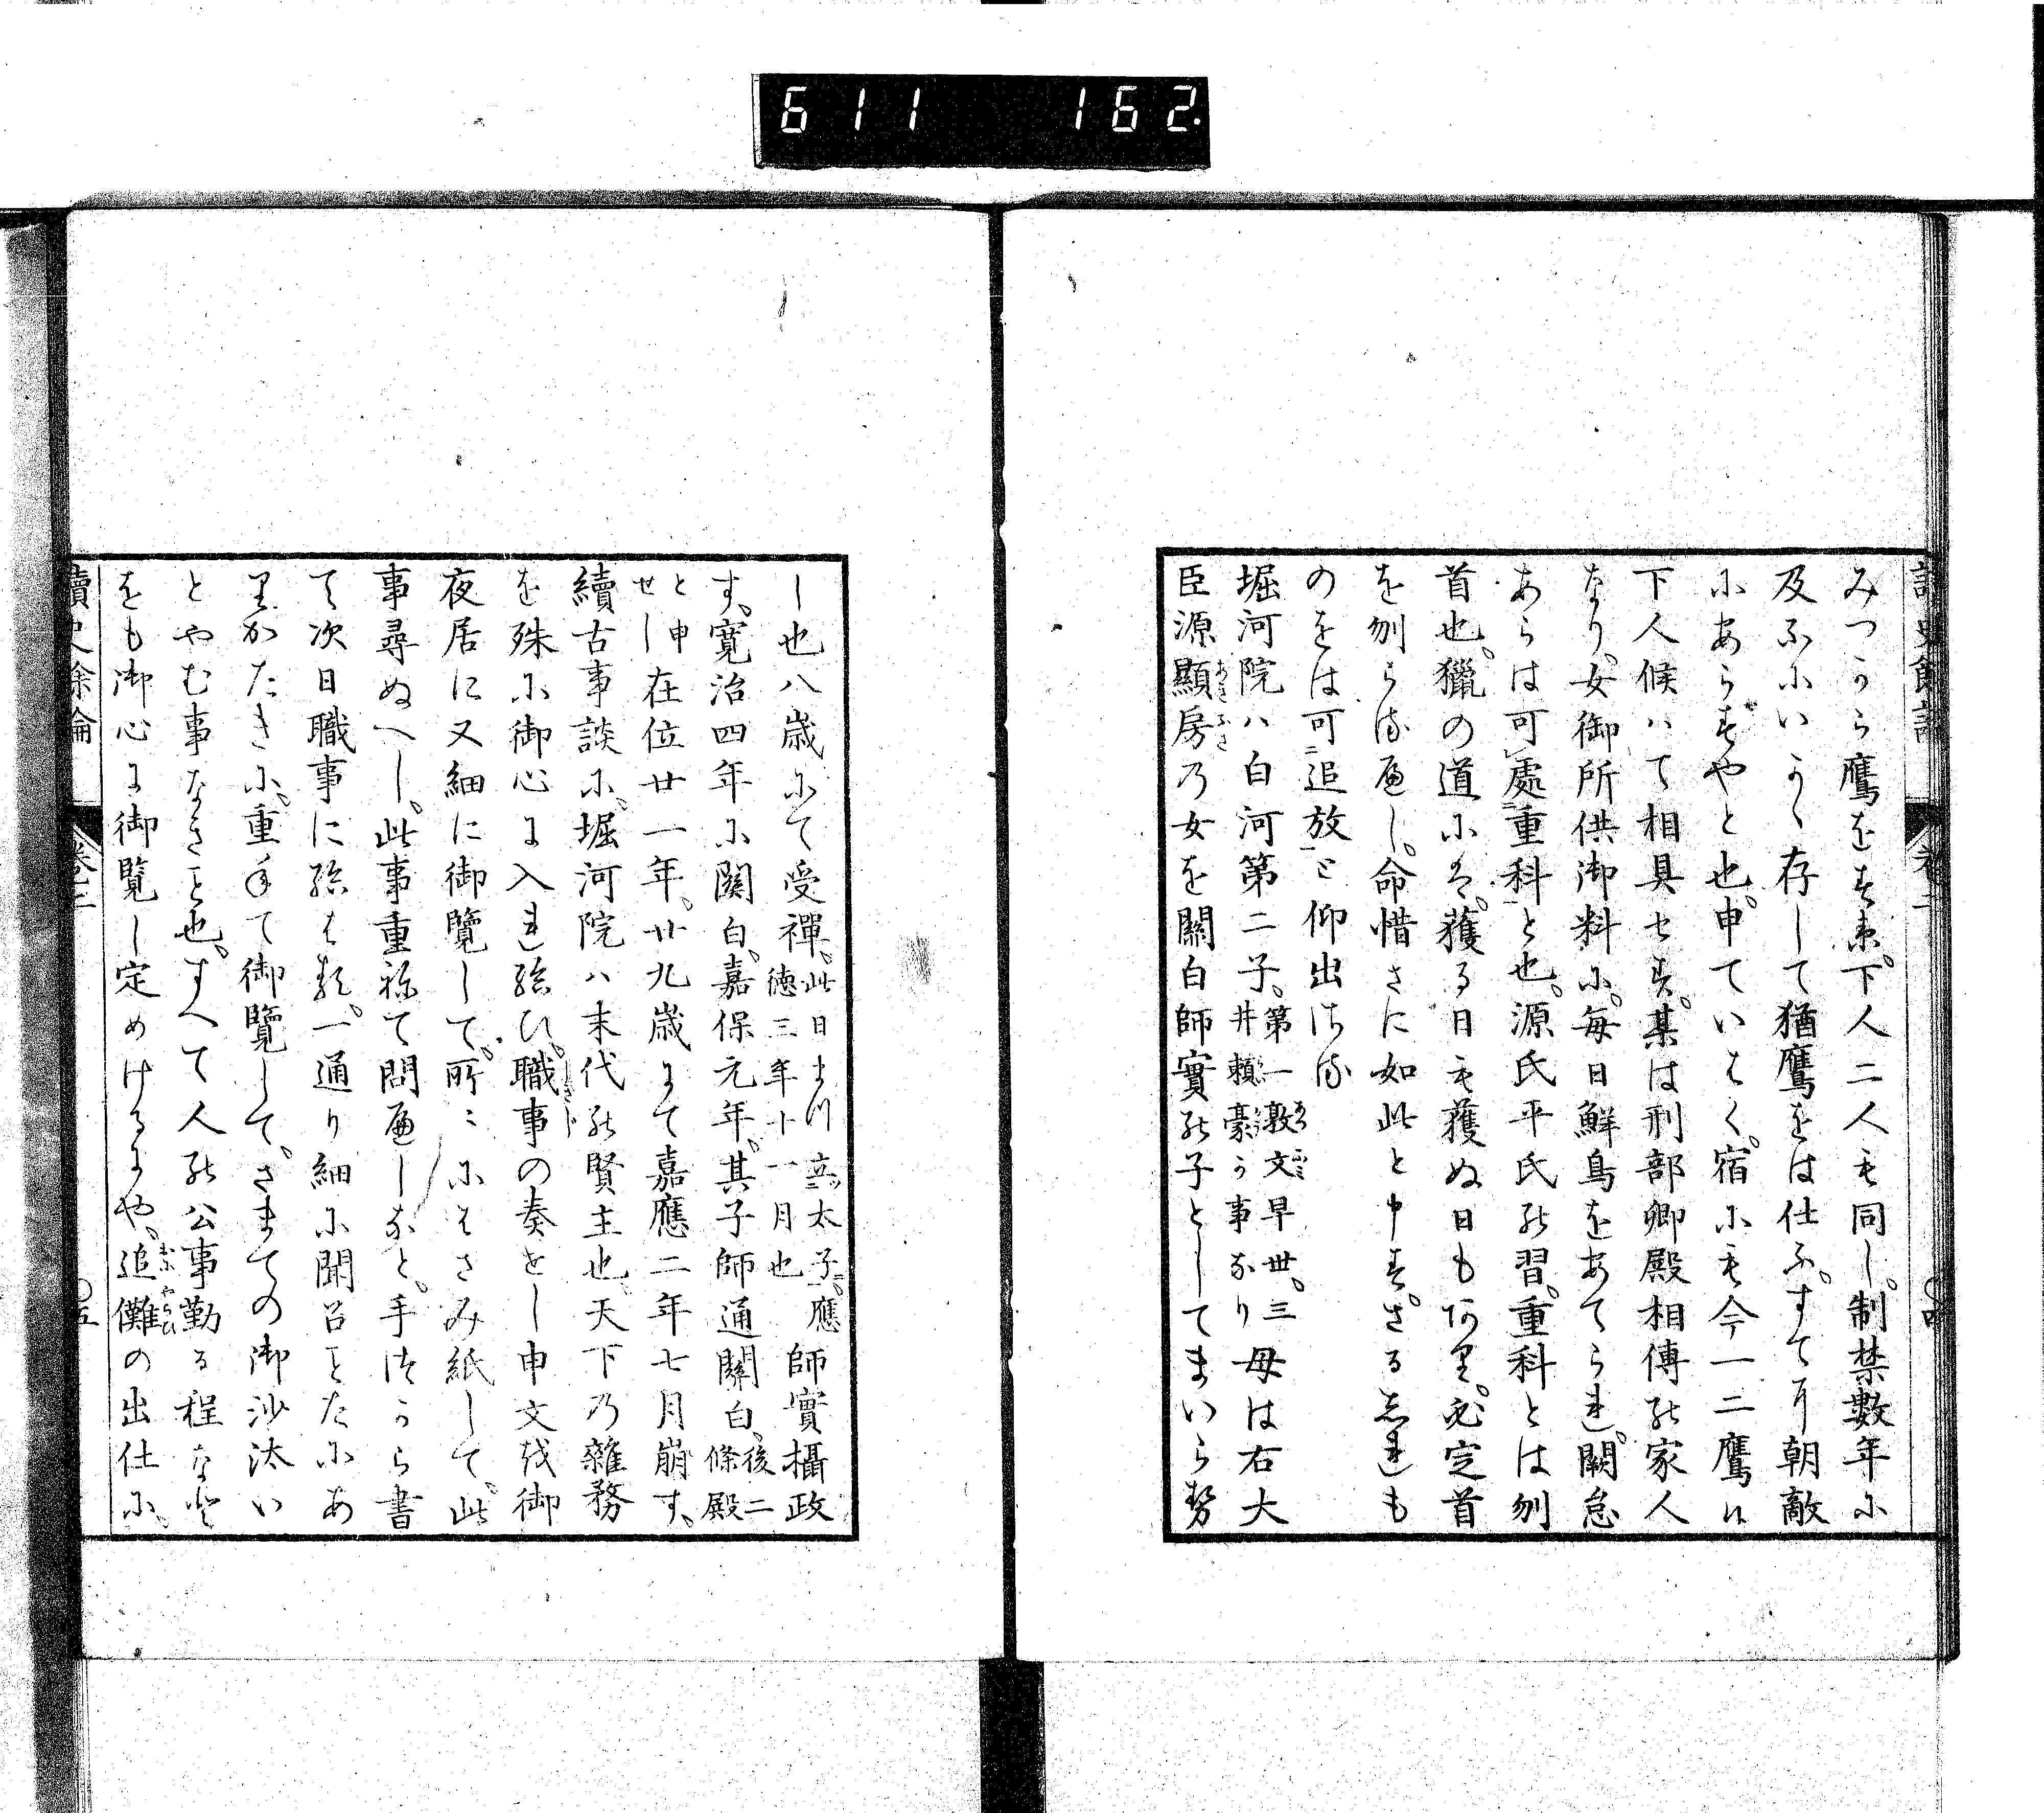 611 162.
讀史餘論 卷二 ○四
みつから鷹をすゑ。下人二人も同し。制禁數年に
及ふにいかゝ存して猶鷹をは仕ふ。すてに朝敵
にあらすやと也。申ていはく。宿にも今一二鷹候
下人候はて相具せす。某は刑部卿殿相傳の家人
なり。女御所供御料に。毎日鮮鳥をあてられ。闕怠
あらは可處重科と也。源氏平氏の習。重科とは刎
首也。獵の道には。獲る日も獲ぬ日もあり。必定首
を刎らるへし。命惜さに如此と申す。さるしれも
のをは可追放と仰出さる
堀河院ハ白河第二子。第一敦文早世。三井頼豪か事なり母は右大
臣源顯房乃女を關白師實の子としてまいらせ
し也八歳にて受禪。此日まつ立太子。應徳三年十一月也師實攝政
す。寛治四年に關白。嘉保元年。其子師通關白。後二條殿
と申せし在位廿一年。廿九歳にて嘉應二年七月崩す。
續古事談に。堀河院ハ末代の賢主也。天下乃雜務
を殊に御心に入れ給ひ。職事の奏せし申文を御
夜居に又細に御覽して。所々にはさみ紙して。此
事尋ぬへし。此事重ねて問へしなと。手つから書
て次日職事に給はる。一通り細に聞召ことたにあ
りかたきに。重ねて御覽して。さまての御沙汰い
とやむ事なきこと也。すへて人の公事勤る程なと
をも御心に御覽し定めけるにや。追儺の出仕に。
讀史餘論 卷二 ○五